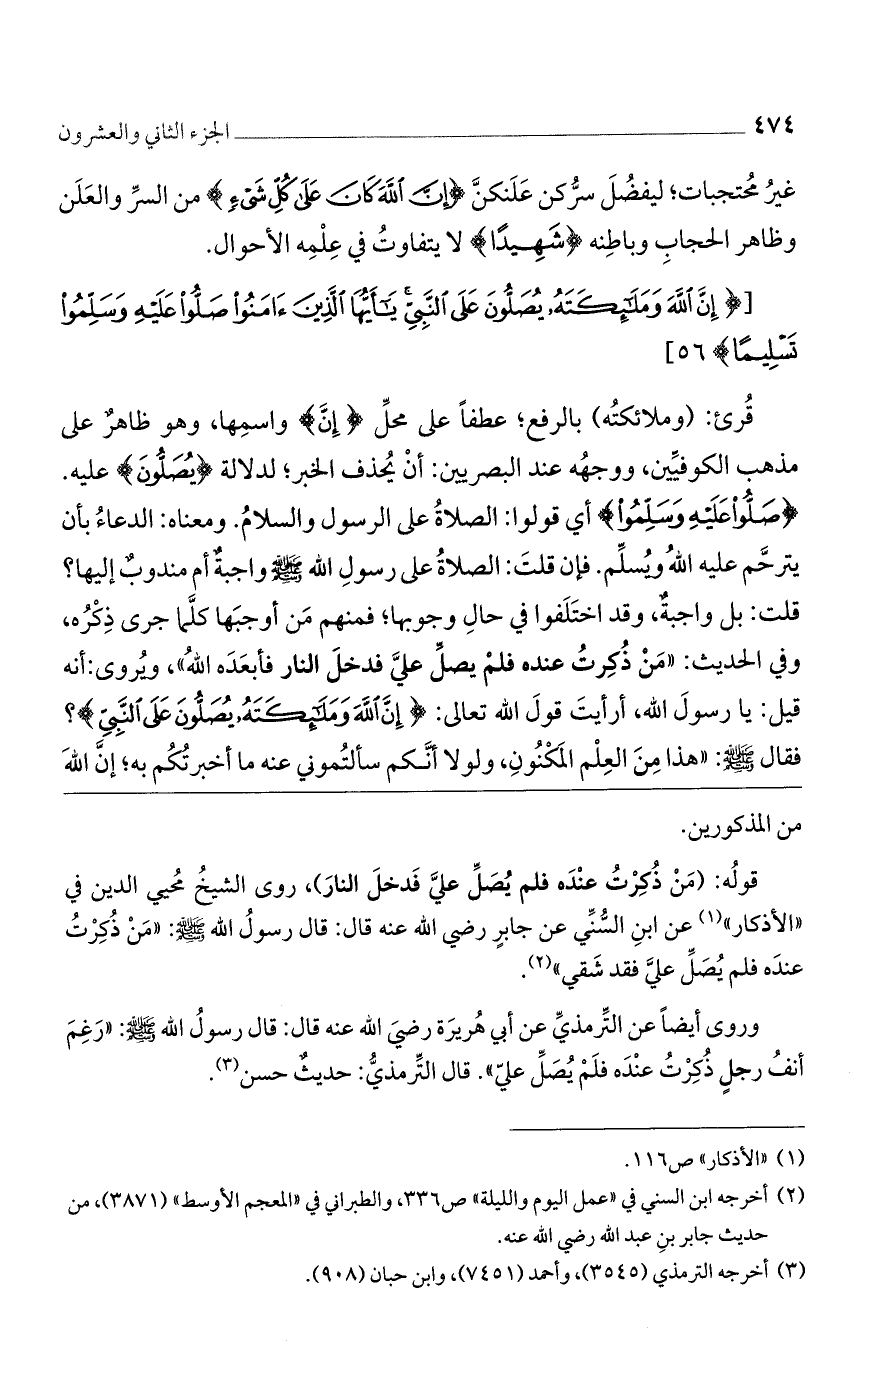 ٤٧٤ ــــــــــــــــــــ الجزء الثاني والعشرون
غيرُ مُحتجبات؛ ليفضُلَ سرُّكن عَلَنكنَّ ﴿إِنَّ ٱللَّهَ كَانَ عَلَىٰ كُلِّ شَىْءٍ﴾ من السرِّ والعَلَن
وظاهر الحجابِ وباطِنه ﴿شَهِيدًا﴾ لا يتفاوتُ في عِلْمِه الأحوال.
[﴿إِنَّ ٱللَّهَ وَمَلَٰٓئِكَتَهُۥ يُصَلُّونَ عَلَى ٱلنَّبِىِّ ۚ يَٰٓأَيُّهَا ٱلَّذِينَ ءَامَنُوا۟ صَلُّوا۟ عَلَيْهِ وَسَلِّمُوا۟
تَسْلِيمًا﴾ ٥٦]
قُرئ: (وملائكتُه) بالرفع؛ عطفاً على محلِّ ﴿إِنَّ﴾ واسمِها، وهو ظاهرٌ على
مذهبِ الكوفيِّين، ووجهُه عند البصريين: أنْ يُحذف الخبر؛ لدلالة ﴿يُصَلُّونَ﴾ عليه.
﴿صَلُّوا۟ عَلَيْهِ وَسَلِّمُوا۟﴾ أي قولوا: الصلاةُ على الرسول والسلامُ. ومعناه: الدعاءُ بأن
يترحَّم عليه اللهُ ويُسلِّم. فإن قلتَ: الصلاةُ على رسولِ الله ﷺ واجبةٌ أم مندوبٌ إليها؟
قلت: بل واجبةٌ، وقد اختَلَفوا في حالِ وجوبها؛ فمنهم مَن أوجبَها كلَّما جرى ذِكْرُه،
وفي الحديث: «مَنْ ذُكِرتُ عنده فلمْ يصلِّ عليَّ فدخلَ النار فأبعَدَه اللهُ»، ويُروى: أنه
قيل: يا رسولَ الله، أرأيتَ قولَ الله تعالى: ﴿إِنَّ ٱللَّهَ وَمَلَٰٓئِكَتَهُۥ يُصَلُّونَ عَلَى ٱلنَّبِىِّ﴾؟
فقال ﷺ: «هذا مِنَ العِلْم المَكْنُونِ، ولولا أنَّكم سألتُموني عنه ما أخبرتُكُم به؛ إنَّ اللهَ
من المذكورين.
قولُه: (مَنْ ذُكِرْتُ عنْدَه فلم يُصَلِّ عليَّ فَدخلَ النارَ)، روى الشيخُ مُحيي الدين في
«الأذكار»(١) عن ابنِ السُّنِّي عن جابرٍ رضي الله عنه قال: قال رسولُ الله ﷺ: «مَنْ ذُكِرْتُ
عندَه فلم يُصَلِّ عليَّ فقد شَقي»(٢).
وروى أيضاً عن التِّرمذيِّ عن أبي هُريرَة رضيَ الله عنه قال: قال رسولُ الله ﷺ: «رَغِمَ
أنفُ رجلٍ ذُكِرْتُ عنْدَه فلَمْ يُصَلِّ عليّ». قال التِّرمذيُّ: حديثٌ حسن(٣).
(١) «الأذكار» ص١١٦.
(٢) أخرجه ابن السني في «عمل اليوم والليلة» ص٣٣٦، والطبراني في «المعجم الأوسط» (٣٨٧١)، من
حديث جابر بنِ عبد الله رضي الله عنه.
(٣) أخرجه الترمذي (٣٥٤٥)، وأحمد (٧٤٥١)، وابن حبان (٩٠٨).